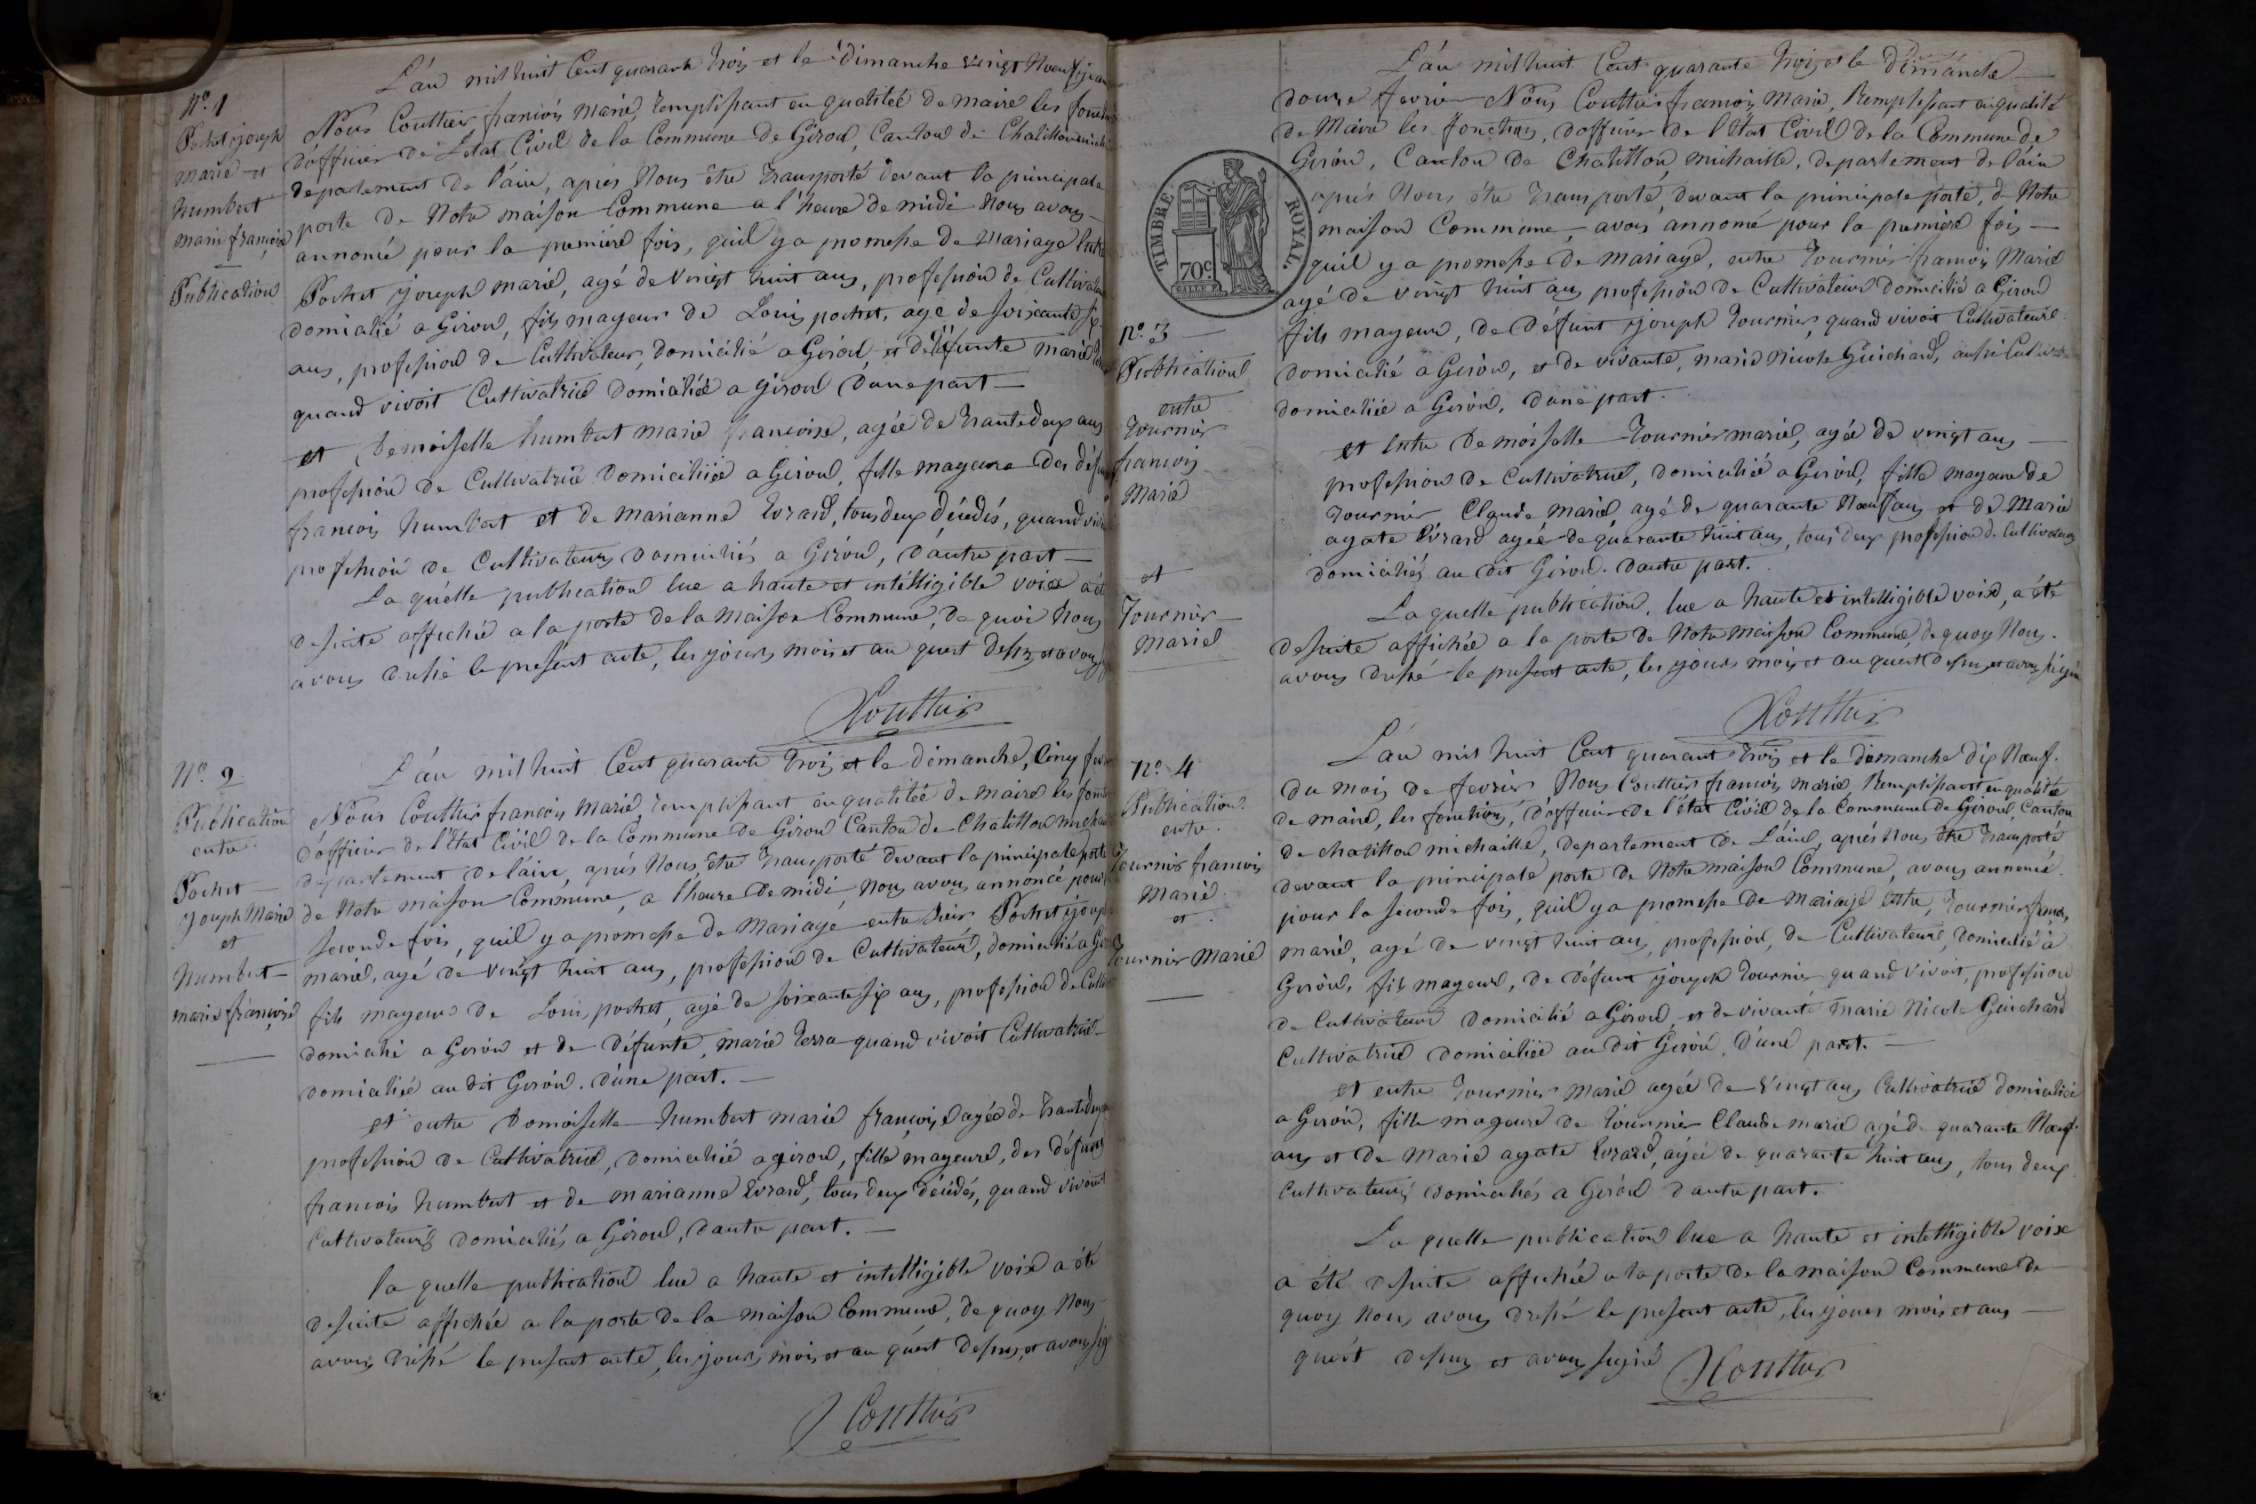 N.º 1
Pochet joseph
marie et
humbert
marie françoise
Publication
L'an mil huit Cent quarante trois et le dimanche vingt Neuf
Nous Couttier françois Marie, remplissant en qualitée de maire les
d'officier de L'etat Civil de la Commune de Giron, Canton de Chatillon
departement de l'ain, apres Nous être transporté devant la principale
porte de Notre maison Commune a l'heure de midi Nous avons
annoncé pour la premiere fois, quil y a promesse de mariage
Pochet joseph marie, agé de vingt huit ans, profession de
domicilié a Giron, fils mayeur de Louis pochet, agé de soixante
ans, profession de Cultivateur, domicilié a Giron et de défunte marie
quand vivoit Cultivatrice domiciliée a giron d'une part
et Demoiselle humbert marie francoise, agée de trante deux ans
profession de Cultivatrice domiciliée a Giron, fille mayeure des
francois humbert et de marianne Evrard, tous deux décédés, quand
profession de Cultivateurs domiciliés a Giron, d'autre part
La quelle publication lue a haute et intelligible voix a
desuite affichée a la porte de la maison Commune, de quoi Nous
avons dressé le présent acte, les jours mois et an quest dessus et avons
Couttier
N.º 2
Publication
entre
Pochet
Joseph Marie
et
humbert
marie françoise
L'an mil huit Cent quarante trois et le dimanche, Cinq
Nous Couttier françois Marie, remplissant en qualitée de maire les
d'officier de l'état Civil de la Commune de Giron Canton de Chatillon
departement de l'ain, apres Nous être transporté devant la principale porte
de Notre maison Commune, a l'heure de midi, Nous avons annoncé pour
seconde fois, quil y a promesse de Mariage entre Pochet
marie, agé de vingt huit ans, profession de Cultivateur, domicilié a
fils mayeur de Louis pochet, agé de soixante six ans, profession de
domicilié a Giron et de défunte, marie terra quand vivoit Cultivatrice
domiciliée au dit Giron. d'une part.
et entre Demoiselle humbert marie françoise agée de
profession de Cultivatrice, domiciliée a giron, fille mayeure, des défunts
francois humbert et de marianne Evrard, tous deux décédés, quand
Cultivateurs domiciliés a Giron, d'autre part.
la quelle publication lue a haute et intelligible voix a été
desuite affichée a la porte de la maison Commune, de quoy Nous
avons dressé le present acte, les jours mois et an quest dessus, et avons
Couttier
L'an mil huit Cent quarante trois et le dimanche
douze fevrier Nous Couttier francois Marie, Remplissant en qualité
de Maire les fonctions, d'officier de l'état Civil de la Commune de
Giron, Canton de Chatillon michaille, departement de l'ain
apres Nous être transporté, devant la principale porte, de Notre
maison Commune, avons annoncé pour la première fois
quil y a promesse de mariage, entre Tournier francois Marie
agé de vingt huit ans profession de Cultivateur domicilié a Giron
fils mayeur, de défunt joseph Tournier, quand vivoit Cultivateur
domicilié a Giron, et de vivante, marie Nicole Guichard, aussi
domiciliée a Giron, d'une part.
et entre Demoiselle Tournier marie, agée de vingt ans
profession de Cultivatrice, domiciliée a Giron, fille mayeure de
Tournier Claude marie, agé de quarante Neuf ans et de Marie
agate Evrard agée de quarante huit ans, tous deux profession de Cultivateurs
domiciliés au dit Giron. d'autre part.
La quelle publication, lue a haute et intelligible voix, a été
desuite affichée a la porte de Notre maison Commune, de quoy Nous
avons dressé le present acte, les jours mois et an quest dessus et avons signé
Couttier
TIMBRE ROYAL
70 c.
N.º 3
Publication
entre
Tournier
francois
Marie
et
Tournier
Marie
N.º 4
Publication
entre
Tournier francois
Marie
et
Tournier Marie
L'an mil huit Cent quarant trois et le dimanche dix Neuf
du mois de fevrier Nous Couttier francois marie Remplissant en qualité
de maire, les fonctions, d'officier de l'état Civil de la Commune de Giron, Canton
de chatillon michaille, departement de L'ain, apres Nous être transporté
devant la principale porte de Notre maison Commune, avons annoncé
pour la seconde fois, quil y a promesse de Mariage entre, Tournier
marie, agé de vingt huit ans, profession, de Cultivateur, domicilié à
Giron, fils mayeur, de défunt joseph Tournier quand vivoit, profession
de Cultivateur domicilié a Giron, et de vivante marie Nicole Guichard
Cultivatrice domiciliée au dit Giron, d'une part.
et entre Tournier marie agée de vingt ans Cultivatrice domiciliée
a Giron, fille mayeure de Tournier Claude marie agé de quarante Neuf
ans et de Marie agate Evrard, agée de quarante huit ans, tous deux
Cultivateurs domiciliés a Giron d'autre part.
La quelle publication lue a haute et intelligible voix
a été desuite affichée a la porte de la maison Commune de
quoy Nous avons dressé le present acte, les jours mois et ans
quest dessus et avons signé Couttier